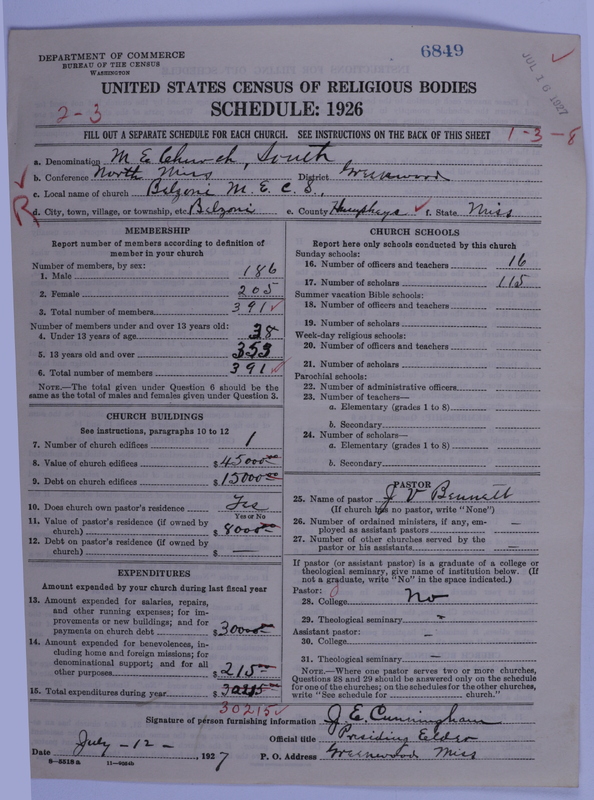 6849
DEPARTMENT OF COMMERCE
BUREAU OF THE CENSUS
WASHINGTON
JUL 16 1927
UNITED STATES CENSUS OF RELIGIOUS BODIES
2-3
SCHEDULE: 1926
FILL OUT A SEPARATE SCHEDULE FOR EACH CHURCH. SEE INSTRUCTIONS ON THE BACK OF THIS SHEET
1-3-8
a. Denomination M E Church, South
b. Conference North Miss District Greenwood
c. Local name of church Belzoni M. E. C. S.,
R
d. City, town, village, or township, etc. Belzoni e. County Humphreys f. State Miss
MEMBERSHIP
Report number of members according to definition of
member in your church
Number of members, by sex:
1. Male 186
2. Female 205
3. Total number of members 391
Number of members under and over 13 years old:
4. Under 13 years of age 38
5. 13 years old and over 353
6. Total number of members 391
NOTE.—The total given under Question 6 should be the
same as the total of males and females given under Question 3.
CHURCH BUILDINGS
See instructions, paragraphs 10 to 12
7. Number of church edifices 1
8. Value of church edifices $ 45000 00
9. Debt on church edifices $ 15000 00
10. Does church own pastor's residence Yes
Yes or No
11. Value of pastor's residence (if owned by
church) $ 8000 00
12. Debt on pastor's residence (if owned by
church) $ —
EXPENDITURES
Amount expended by your church during last fiscal year
13. Amount expended for salaries, repairs,
and other running expenses; for im-
provements or new buildings; and for
payments on church debt $ 30000 00
14. Amount expended for benevolences, in-
cluding home and foreign missions; for
denominational support; and for all
other purposes $ 215 00
15. Total expenditures during year $
30215
CHURCH SCHOOLS
Report here only schools conducted by this church
Sunday schools:
16. Number of officers and teachers 16
17. Number of scholars 115
Summer vacation Bible schools:
18. Number of officers and teachers
19. Number of scholars
Week-day religious schools:
20. Number of officers and teachers
21. Number of scholars
Parochial schools:
22. Number of administrative officers
23. Number of teachers—
a. Elementary (grades 1 to 8)
b. Secondary
24. Number of scholars—
a. Elementary (grades 1 to 8)
b. Secondary
PASTOR
25. Name of pastor J V Bennett
(If church has no pastor, write "None")
26. Number of ordained ministers, if any, em-
ployed as assistant pastors —
27. Number of other churches served by the
pastor or his assistants —
If pastor (or assistant pastor) is a graduate of a college or
theological seminary, give name of institution below. (If
not a graduate, write "No" in the space indicated.)
Pastor:
28. College No
29. Theological seminary -
Assistant pastor:
30. College —
31. Theological seminary —
NOTE.—Where one pastor serves two or more churches,
Questions 28 and 29 should be answered only on the schedule
for one of the churches; on the schedules for the other churches,
write "See schedule for church."
Signature of person furnishing information J. E. Cunningham
Official title Presiding Elder
Date July - 12 - 1927 P. O. Address Greenwood Miss
8-5518a 11-9064b